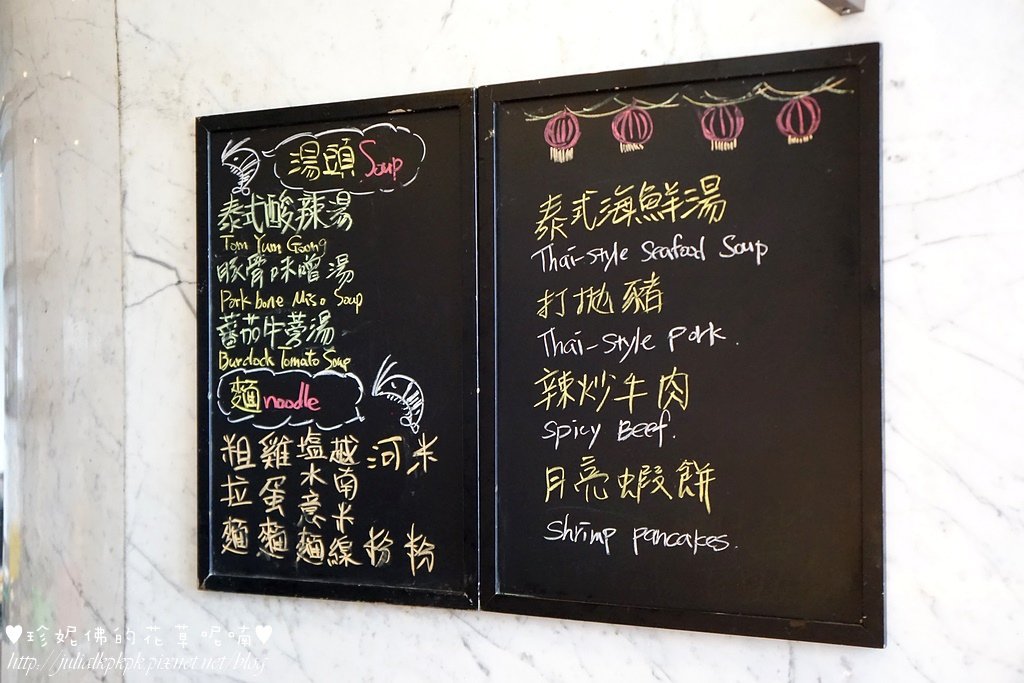 湯頭 Soup
泰式酸辣湯
Tom Yum Goong
豚骨味噌湯
Pork bone Miso Soup
蕃茄牛蒡湯
Burdock Tomato Soup
麵 noodle
粗拉麵
雞蛋麵
鹽水意麵
越南米線
河粉
米粉
泰式海鮮湯
Thai-style Seafood Soup
打拋豬
Thai-style pork.
辣炒牛肉
Spicy Beef.
月亮蝦餅
shrimp pancakes.
♥珍妮佛的花草呢喃♥
http://julialkpkpk.pixnet.net/blog